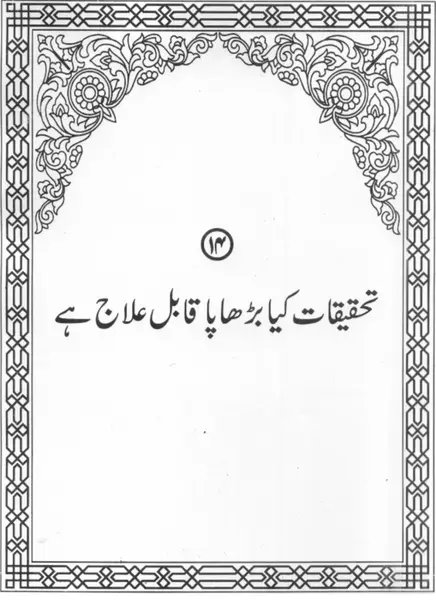 ۱۴
تحقیقات کیا بڑھاپا قابل علاج ہے